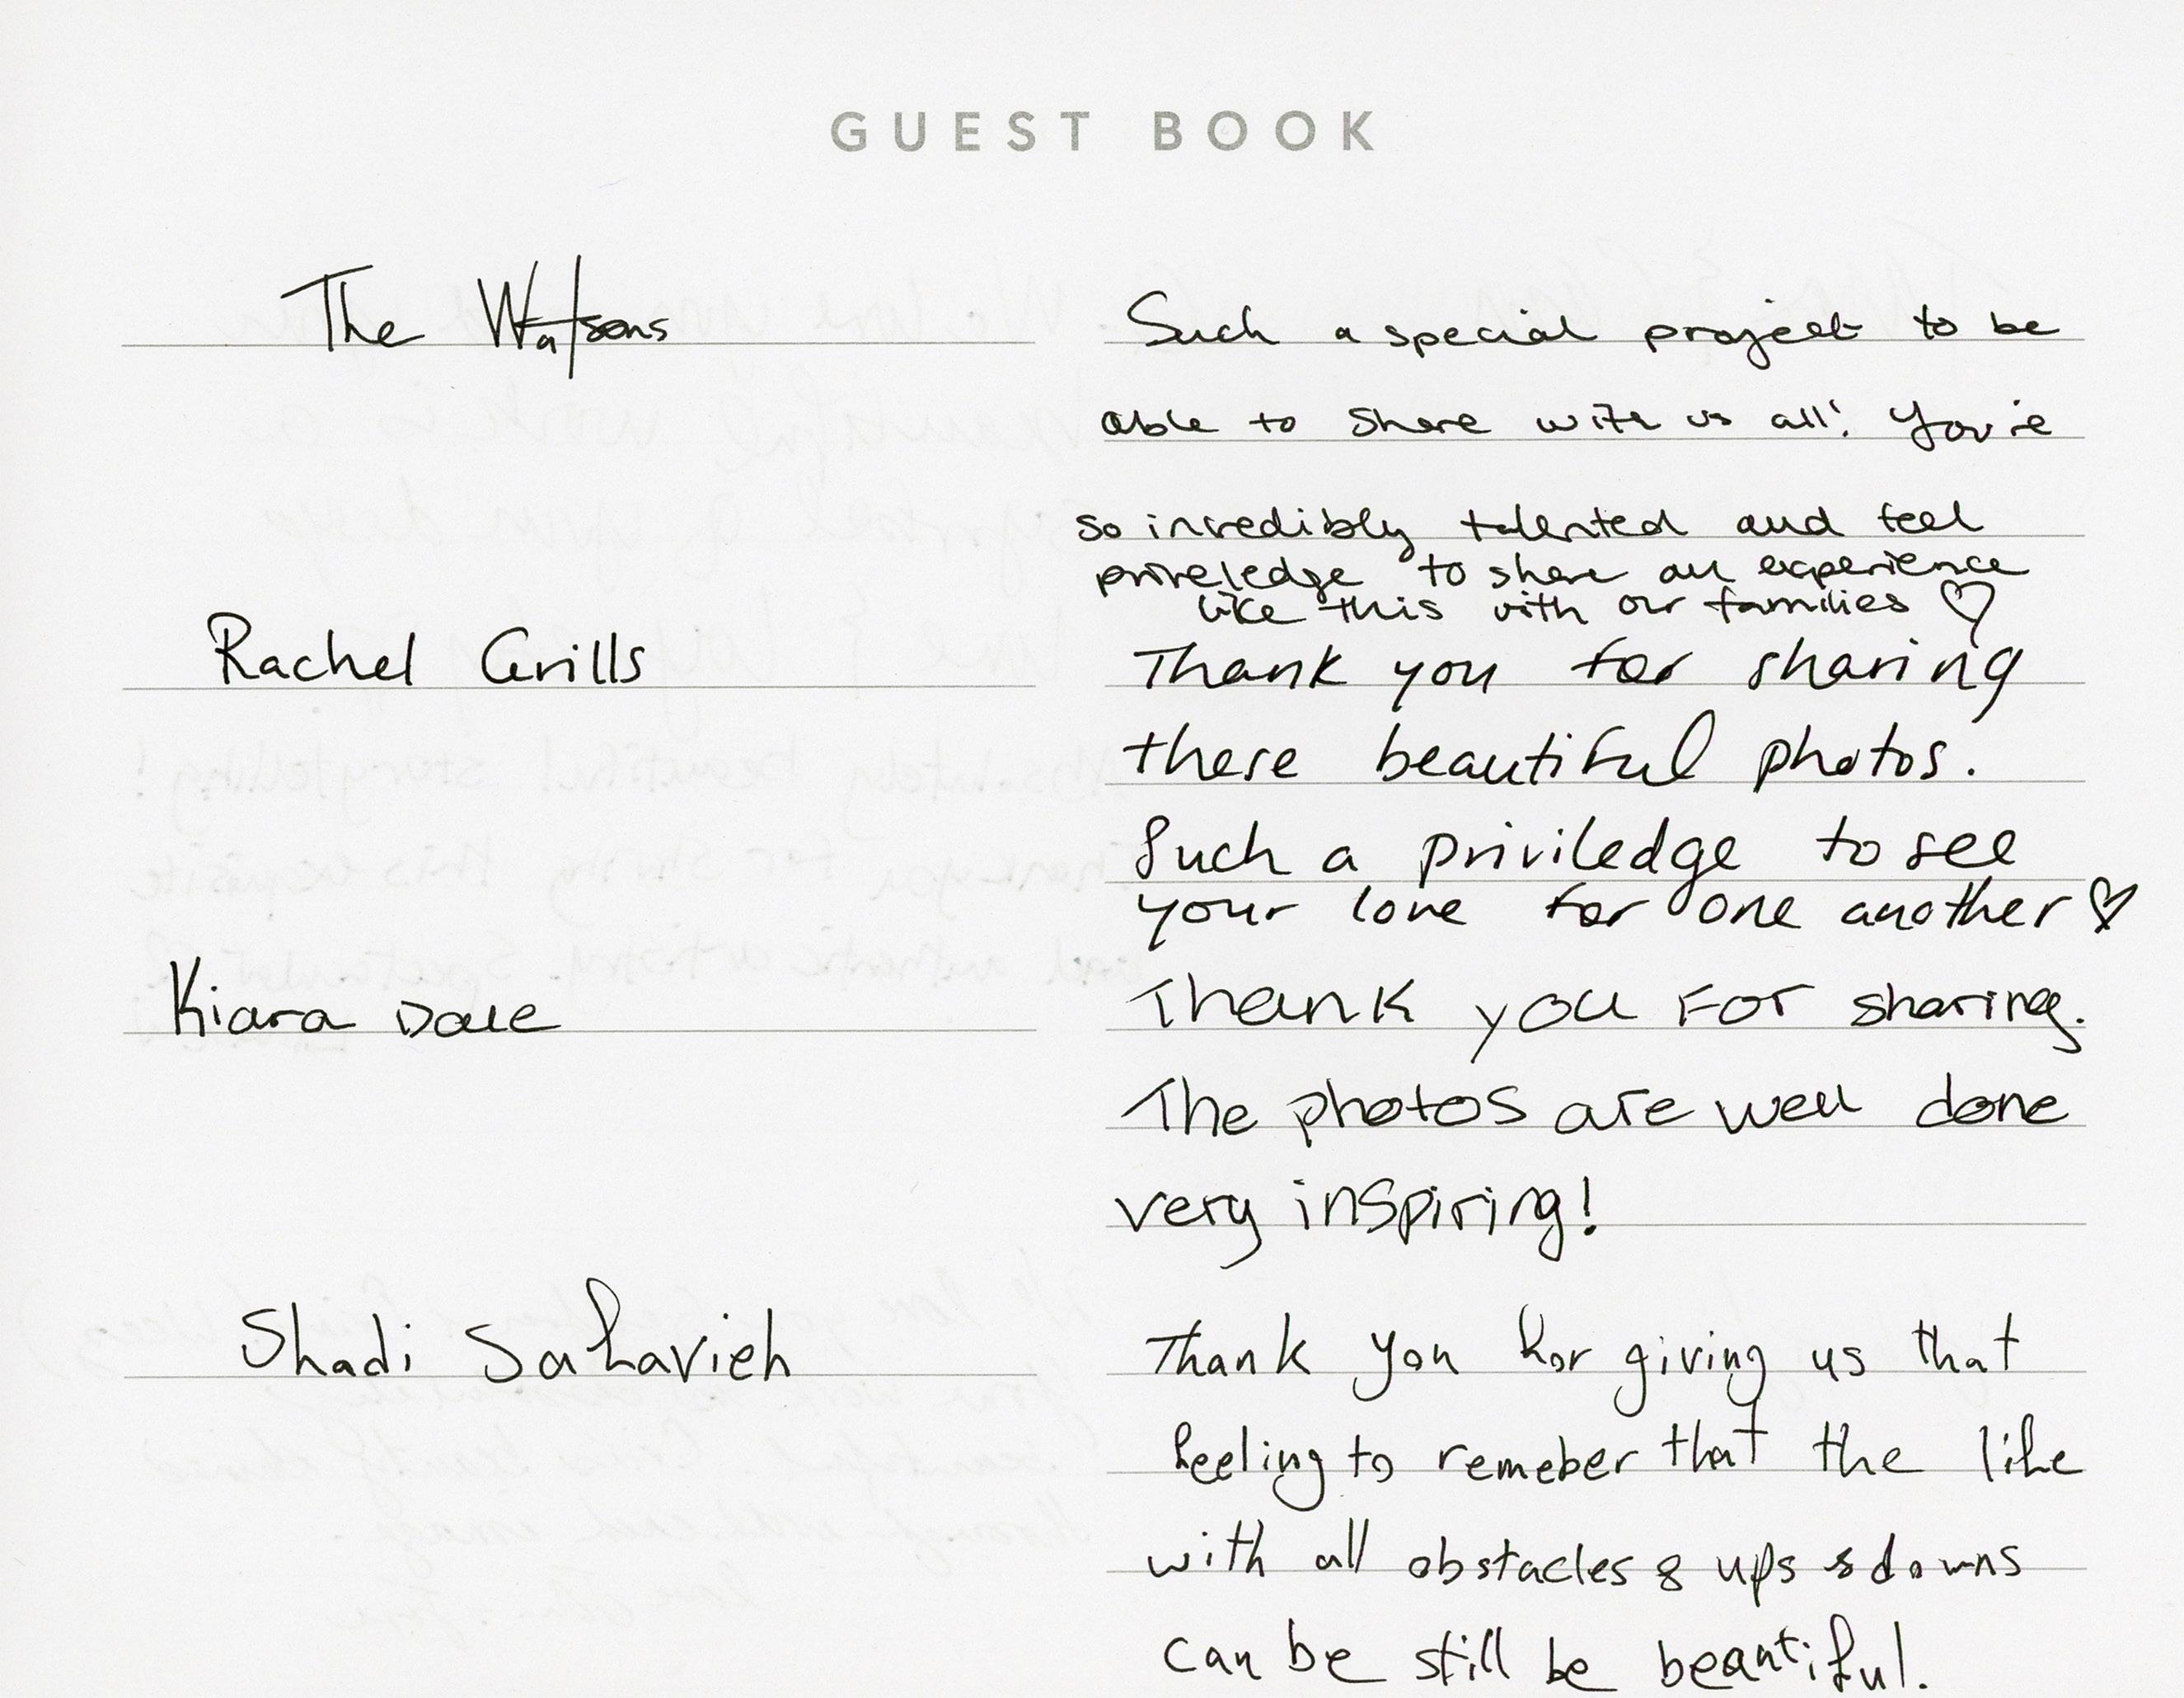 GUEST BOOK
The Watsons
Such a special project to be
able to share with us all! You're
so incredibly talented and feel
priveledge to share an experience
like this with our families ♡
Rachel Grills
Thank you for sharing
these beautiful photos.
Such a priviledge to see
your love for one another ♡
Kiara Dale
Thank you For sharing.
The photos are well done
very inspiring!
Shadi Safavieh
Thank you for giving us that
feeling to remeber that the life
with all obstacles & ups & downs
can be still be beautiful.